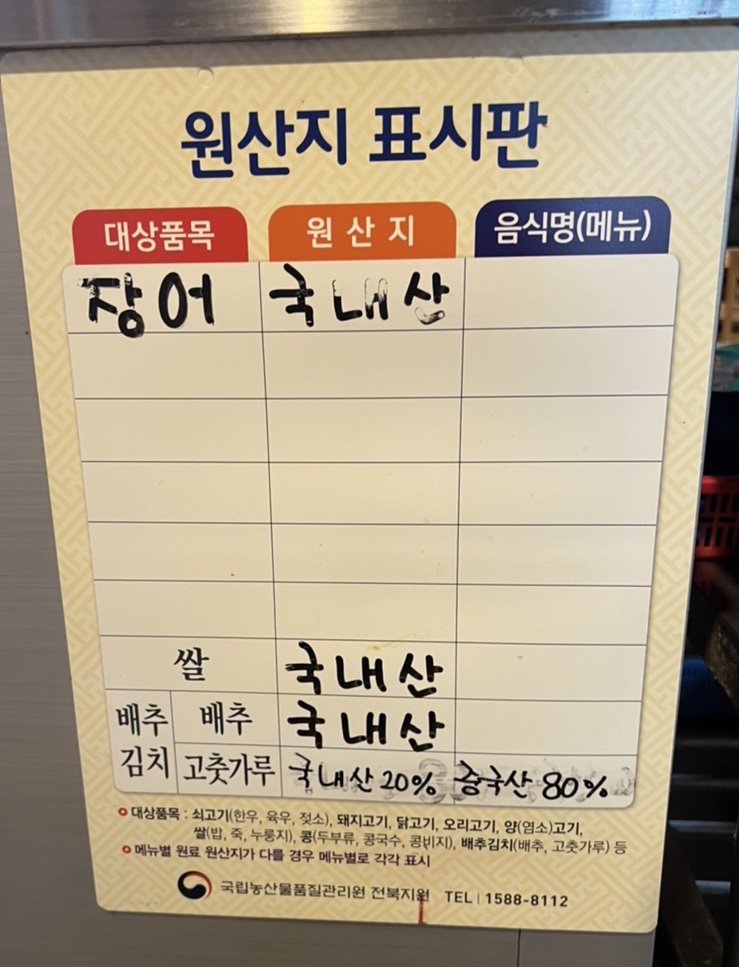 원산지 표시판
대상품목 원산지 음식명(메뉴)
장어 국내산
쌀 국내산
배추김치 배추 국내산
고춧가루 국내산 20% 중국산 80%
대상품목 : 쇠고기(한우, 육우, 젖소), 돼지고기, 닭고기, 오리고기, 양(염소)고기,
쌀(밥, 죽, 누룽지), 콩(두부류, 콩국수, 콩비지), 배추김치(배추, 고춧가루) 등
메뉴별 원료 원산지가 다를 경우 메뉴별로 각각 표시
국립농산물품질관리원 전북지원 TEL | 1588-8112